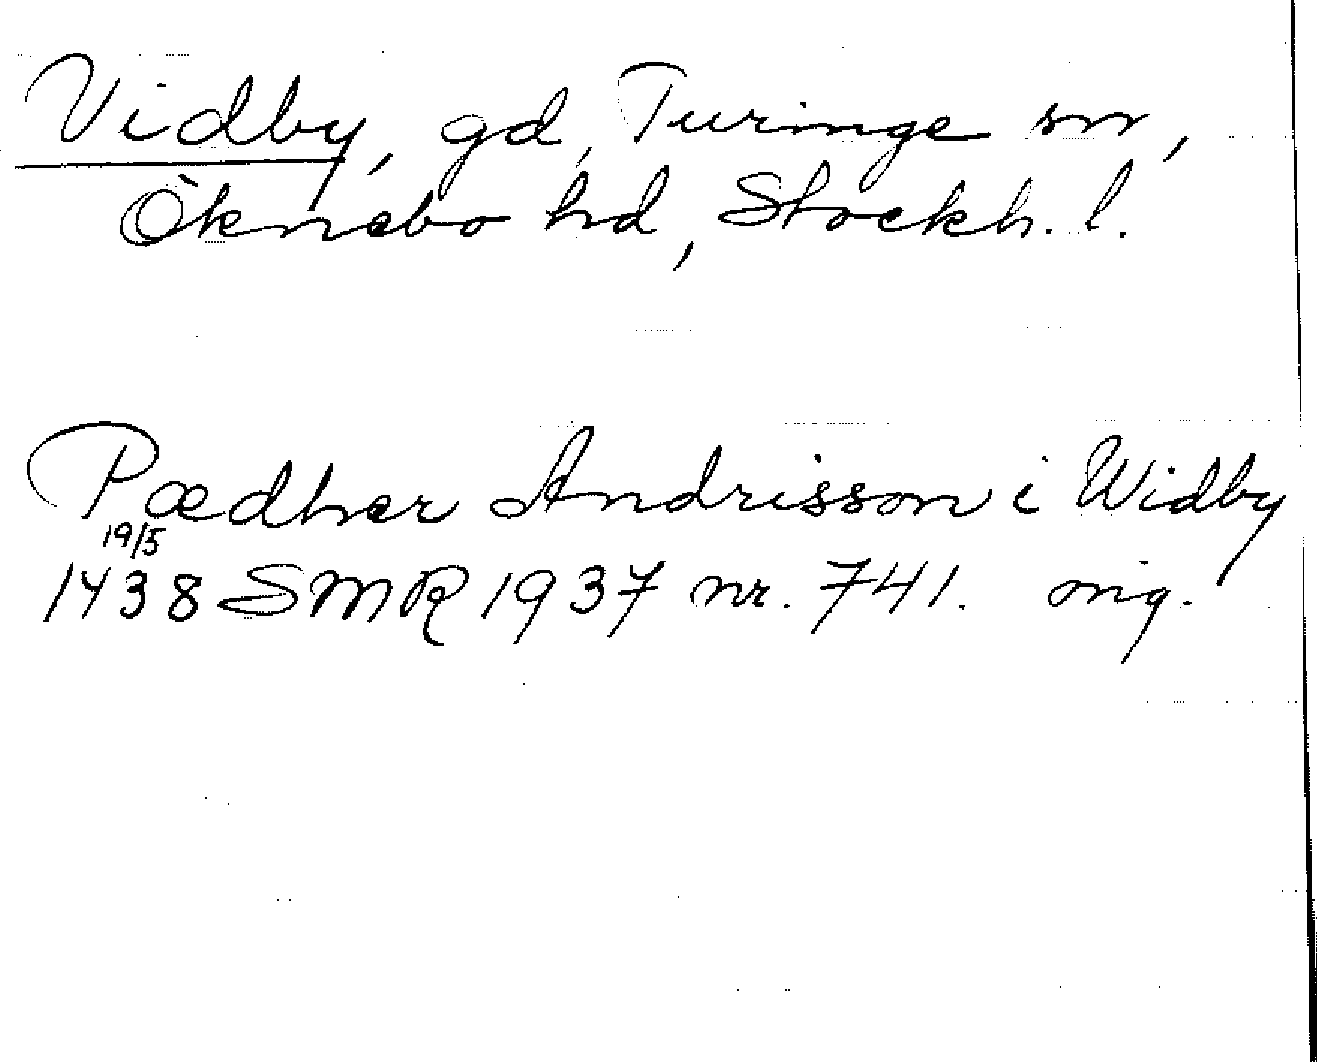 Vidby, gd, Turinge sn,
Öknebo hd, Stockh. l.
Pædher Andrisson i Widby
19/5
1438 SMR 1937 nr. 741. orig.